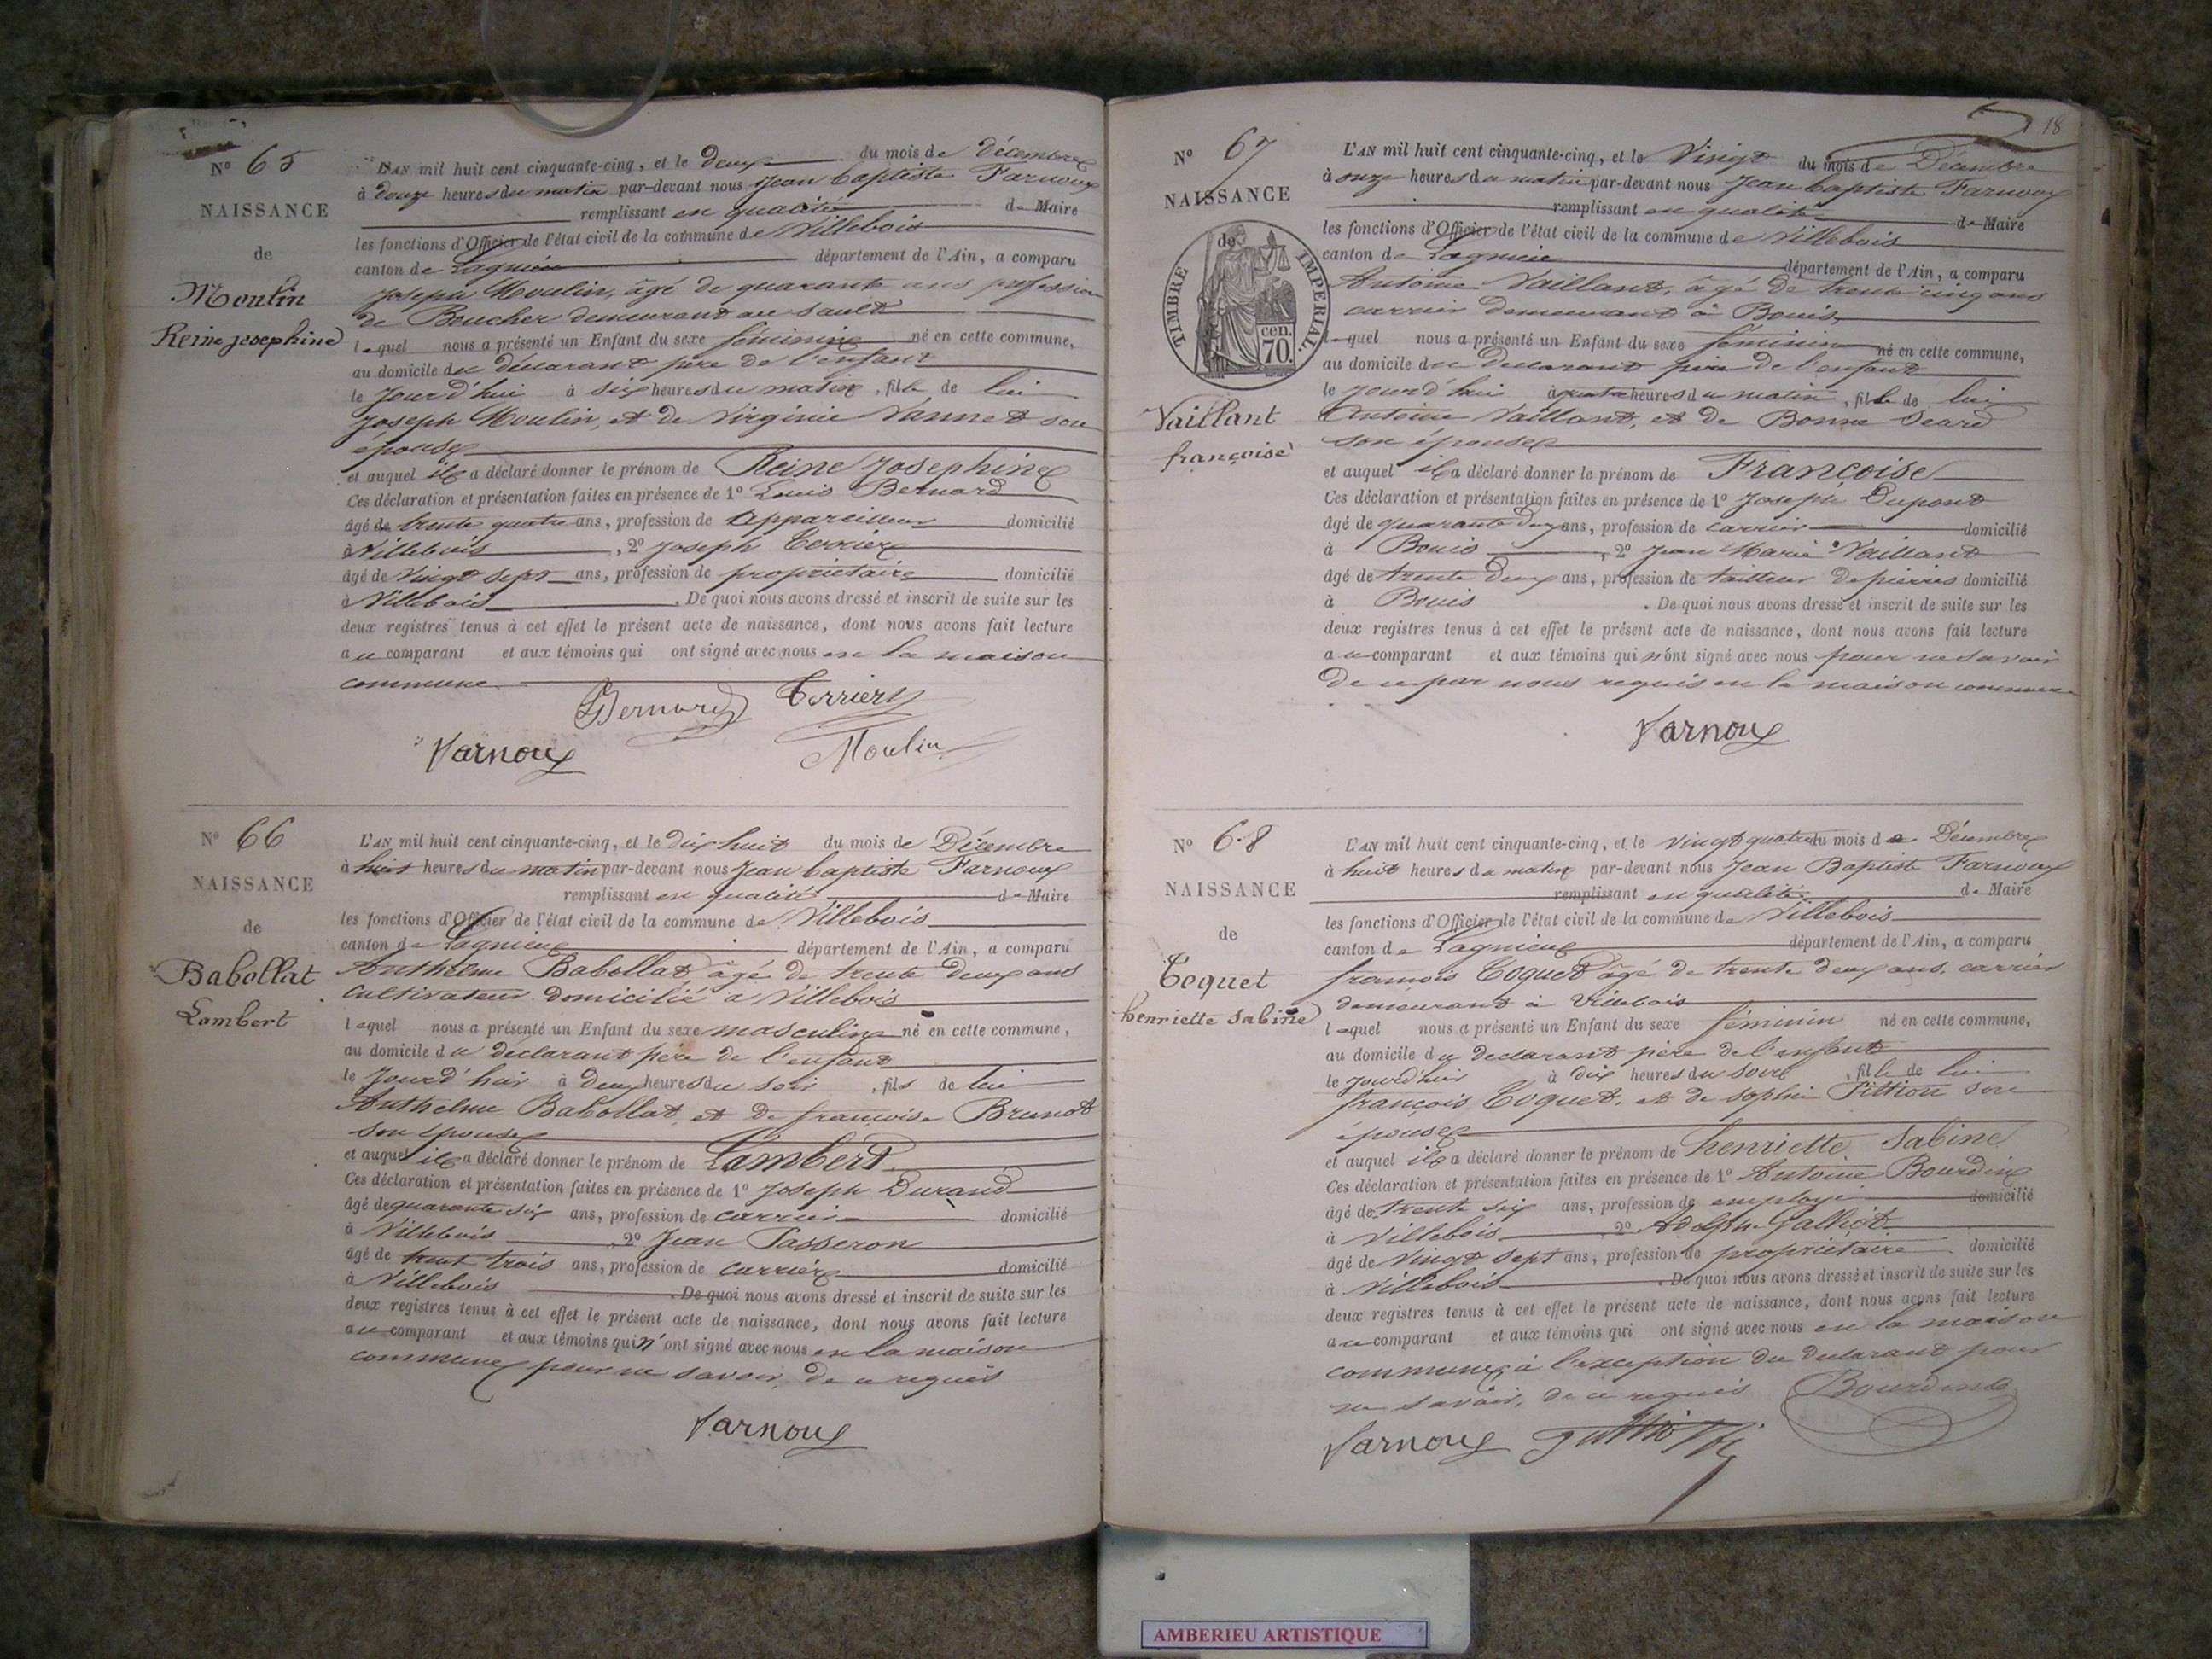 N° 65
NAISSANCE
de
Moulin
Reine josephine
L'AN mil huit cent cinquante-cinq, et le deux du mois de décembre
à douze heures du matin par-devant nous Jean baptiste Farnoux
remplissant en qualité de Maire
les fonctions d'Officier de l'état civil de la commune de Villebois
canton de Lagnieu département de l'Ain, a comparu
Joseph Moulin, âgé de quarante ans profession
de Boucher demeurant au Sault
lequel nous a présenté un Enfant du sexe féminin né en cette commune,
au domicile du déclarant père de l'enfant
le jourd'hui à six heures du matin, fille de lui
Joseph Moulin, et de Virginie Vannet son
épouse
et auquel il a déclaré donner le prénom de Reine Josephine
Ces déclaration et présentation faites en présence de 1° Louis Bernard
âgé de trente quatre ans, profession de appareilleur domicilié
à Villebois, 2° Joseph Terrier
âgé de vingt sept ans, profession de propriétaire domicilié
à Villebois. De quoi nous avons dressé et inscrit de suite sur les
deux registres tenus à cet effet le présent acte de naissance, dont nous avons fait lecture
au comparant et aux témoins qui ont signé avec nous en la maison
commune
Bernard Terrier
Farnoux Moulin
N° 66
NAISSANCE
de
Babollat
Lambert
L'AN mil huit cent cinquante-cinq, et le dix huit du mois de Décembre
à huit heures du matin par-devant nous Jean baptiste Farnoux
remplissant en qualité de Maire
les fonctions d'Officier de l'état civil de la commune de Villebois
canton de Lagnieu département de l'Ain, a comparu
Anthelme Babollat, âgé de trente deux ans
cultivateur domicilié a Villebois
lequel nous a présenté un Enfant du sexe masculin né en cette commune,
au domicile du déclarant père de l'enfant
le jourd'hui à deux heures du soir, fils de lui
Anthelme Babollat, et de françoise Brunot
son epouse
et auquel il a déclaré donner le prénom de Lambert
Ces déclaration et présentation faites en présence de 1° Joseph Durand
âgé de quarante six ans, profession de carrier domicilié
à Villebois, 2° Jean Passeron
âgé de trent trois ans, profession de carrier domicilié
à Villebois. De quoi nous avons dressé et inscrit de suite sur les
deux registres tenus à cet effet le présent acte de naissance, dont nous avons fait lecture
au comparant et aux témoins qui n'ont signé avec nous en la maison
commune pour ne savoir, de ce requis
Farnoux
18
N° 67
NAISSANCE
de
TIMBRE IMPERIAL
70 cen.
Vaillant
françoise
L'AN mil huit cent cinquante-cinq, et le Vingt du mois de Décembre
à onze heures du matin par-devant nous Jean baptiste Farnoux
remplissant en qualité de Maire
les fonctions d'Officier de l'état civil de la commune de Villebois
canton de Lagnieu département de l'Ain, a comparu
Antoine Vaillant, âgé de trente cinq ans
carrier demeurant à Bouis
lequel nous a présenté un Enfant du sexe féminin né en cette commune,
au domicile du declarant père de l'enfant
le jourd'hui à quatre heures du matin, fille de lui
Antoine Vaillant, et de Bonne Seard
son épouse
et auquel il a déclaré donner le prénom de Françoise
Ces déclaration et présentation faites en présence de 1° Joseph Dupont
âgé de quarante deux ans, profession de carrier domicilié
à Bouis, 2° Jean Marie Vaillant
âgé de trente deux ans, profession de tailleur de pierres domicilié
à Bouis. De quoi nous avons dressé et inscrit de suite sur les
deux registres tenus à cet effet le présent acte de naissance, dont nous avons fait lecture
au comparant et aux témoins qui n'ont signé avec nous pour ne savoir
de ce par nous requis en la maison commune
Farnoux
N° 68
NAISSANCE
de
Coquet
henriette sabine
L'AN mil huit cent cinquante-cinq, et le vingt quatre du mois de Décembre
à huit heures du matin par-devant nous Jean Baptiste Farnoux
remplissant en qualité de Maire
les fonctions d'Officier de l'état civil de la commune de Villebois
canton de Lagnieu département de l'Ain, a comparu
françois Coquet âgé de trente deux ans, carrier
demeurant à Villebois
lequel nous a présenté un Enfant du sexe féminin né en cette commune,
au domicile du declarant père de l'enfant
le jourd'hier à dix heures du soire, fille de lui
françois Coquet, et de sophie Pittion son
épouse
et auquel il a déclaré donner le prénom de henriette Sabine
Ces déclaration et présentation faites en présence de 1° Antoine Bourdin
âgé de trente six ans, profession de employé domicilié
à Villebois, 2° Adolphe Galliot
âgé de Vingt sept ans, profession de propriétaire domicilié
à Villebois. De quoi nous avons dressé et inscrit de suite sur les
deux registres tenus à cet effet le présent acte de naissance, dont nous avons fait lecture
au comparant et aux témoins qui ont signé avec nous en la maison
commune, à l'exception du declarant pour
ne savoir, de ce requis Bourdin
Farnoux Galliot
AMBERIEU ARTISTIQUE